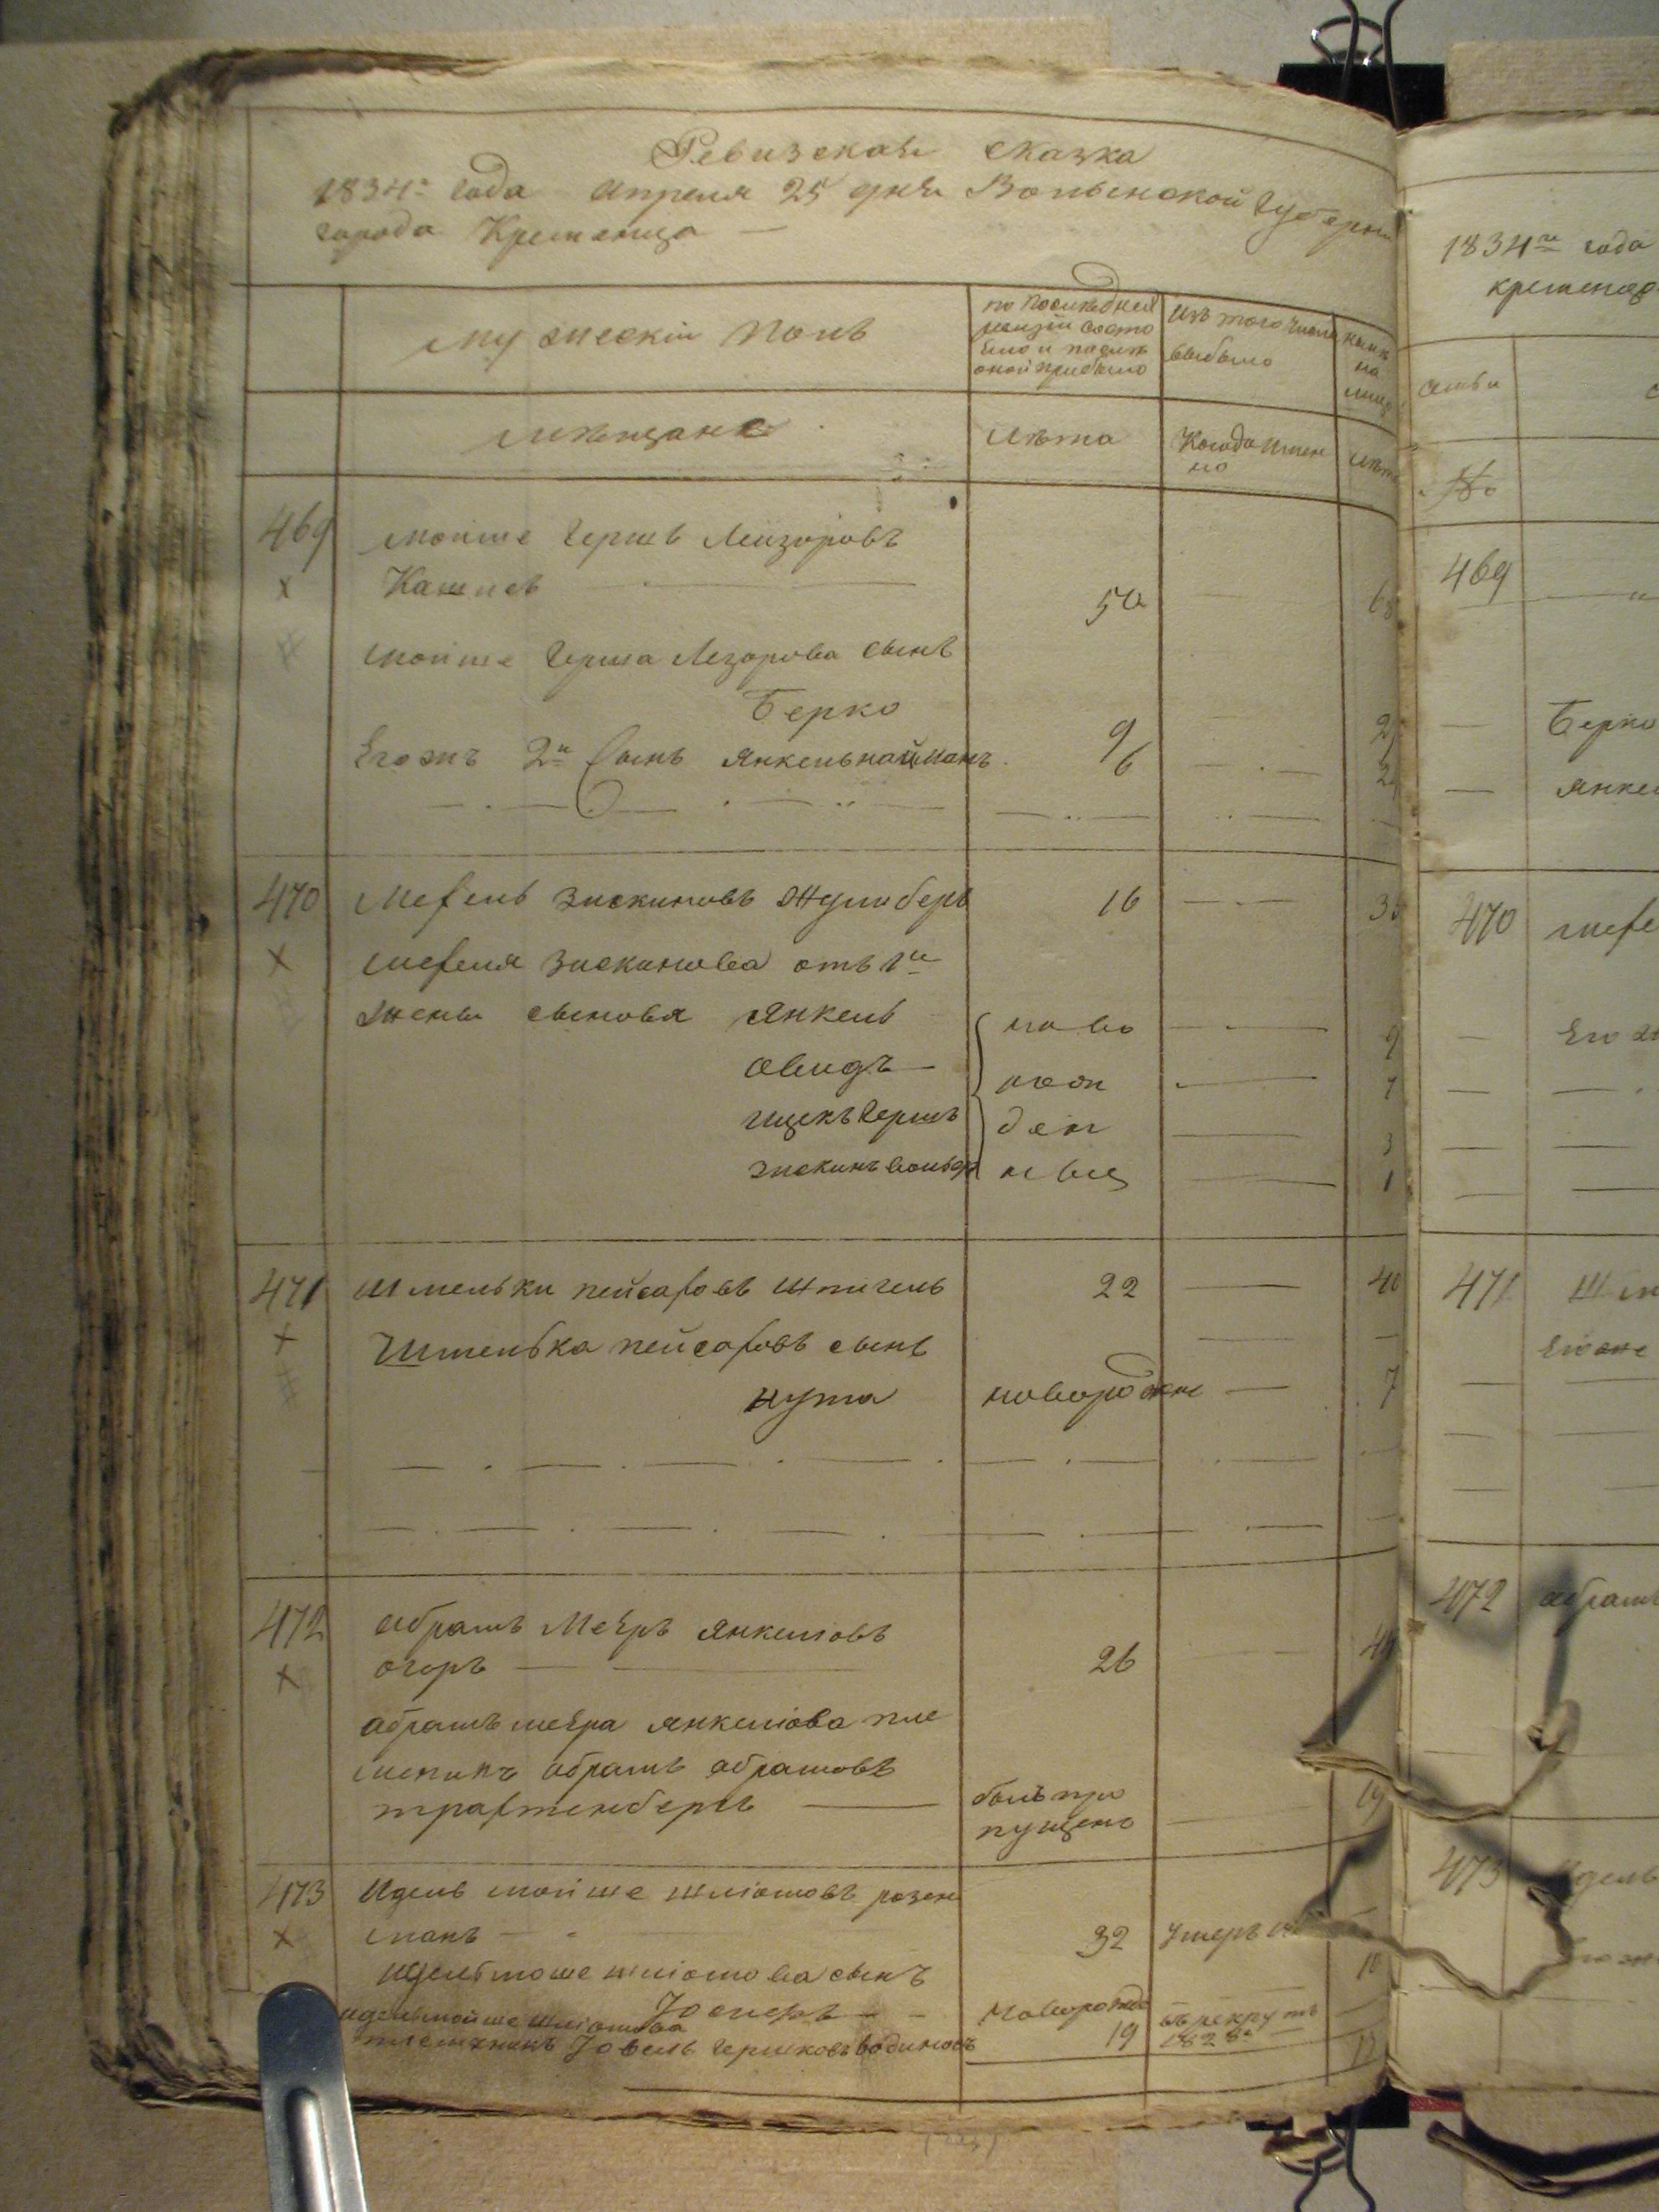 Ревизская сказка
1834го года Апреля 25 дня Волынской Губернии
города Кременца —
мужескій Полъ
по последней ревизіи состояло и после оной прибыло
Изъ того числа выбыло
ныне на лицо
мещане
лета
Когда именно
лета
469 мойше Гершъ Лейзоровъ
Кашпсъ 50
мойше Герша Лезорова сынъ
Берко 9
Его жъ 2й сынъ Янкель найманъ 6
470 Мефель Зискиновъ 16
мефеля Зискинова отъ 1й
жены сыновья Янкель ново 9
Овидъ — рож 7
ицикъ Гершъ ден 3
зискинъ вольф ныц 1
471 Шмельки пейсаховъ Шпигель 22 40
Шмелька пейсаховъ сынъ
нута новорожне 7
472 абрамъ Мееръ Янкелиовъ
огоръ 26
абрамъ меера янкелиова пле
меникъ абрамъ абрамовъ
трахтенбергъ былъ про
пущенъ 19
473 Идель мойше шліомовъ розен
манъ 32 умеръ
идель моше шліомова сынъ
Іосифъ новорожд 10
идель мойше шліомова
племеникъ Іовель Гершковъ 19 въ рекруты 1828го
1834го года
кременец
семьи
№
469
Берко
Янкел
470 мефе
Его ж
471 Шм
Его же
472 абрамъ
473 Идель